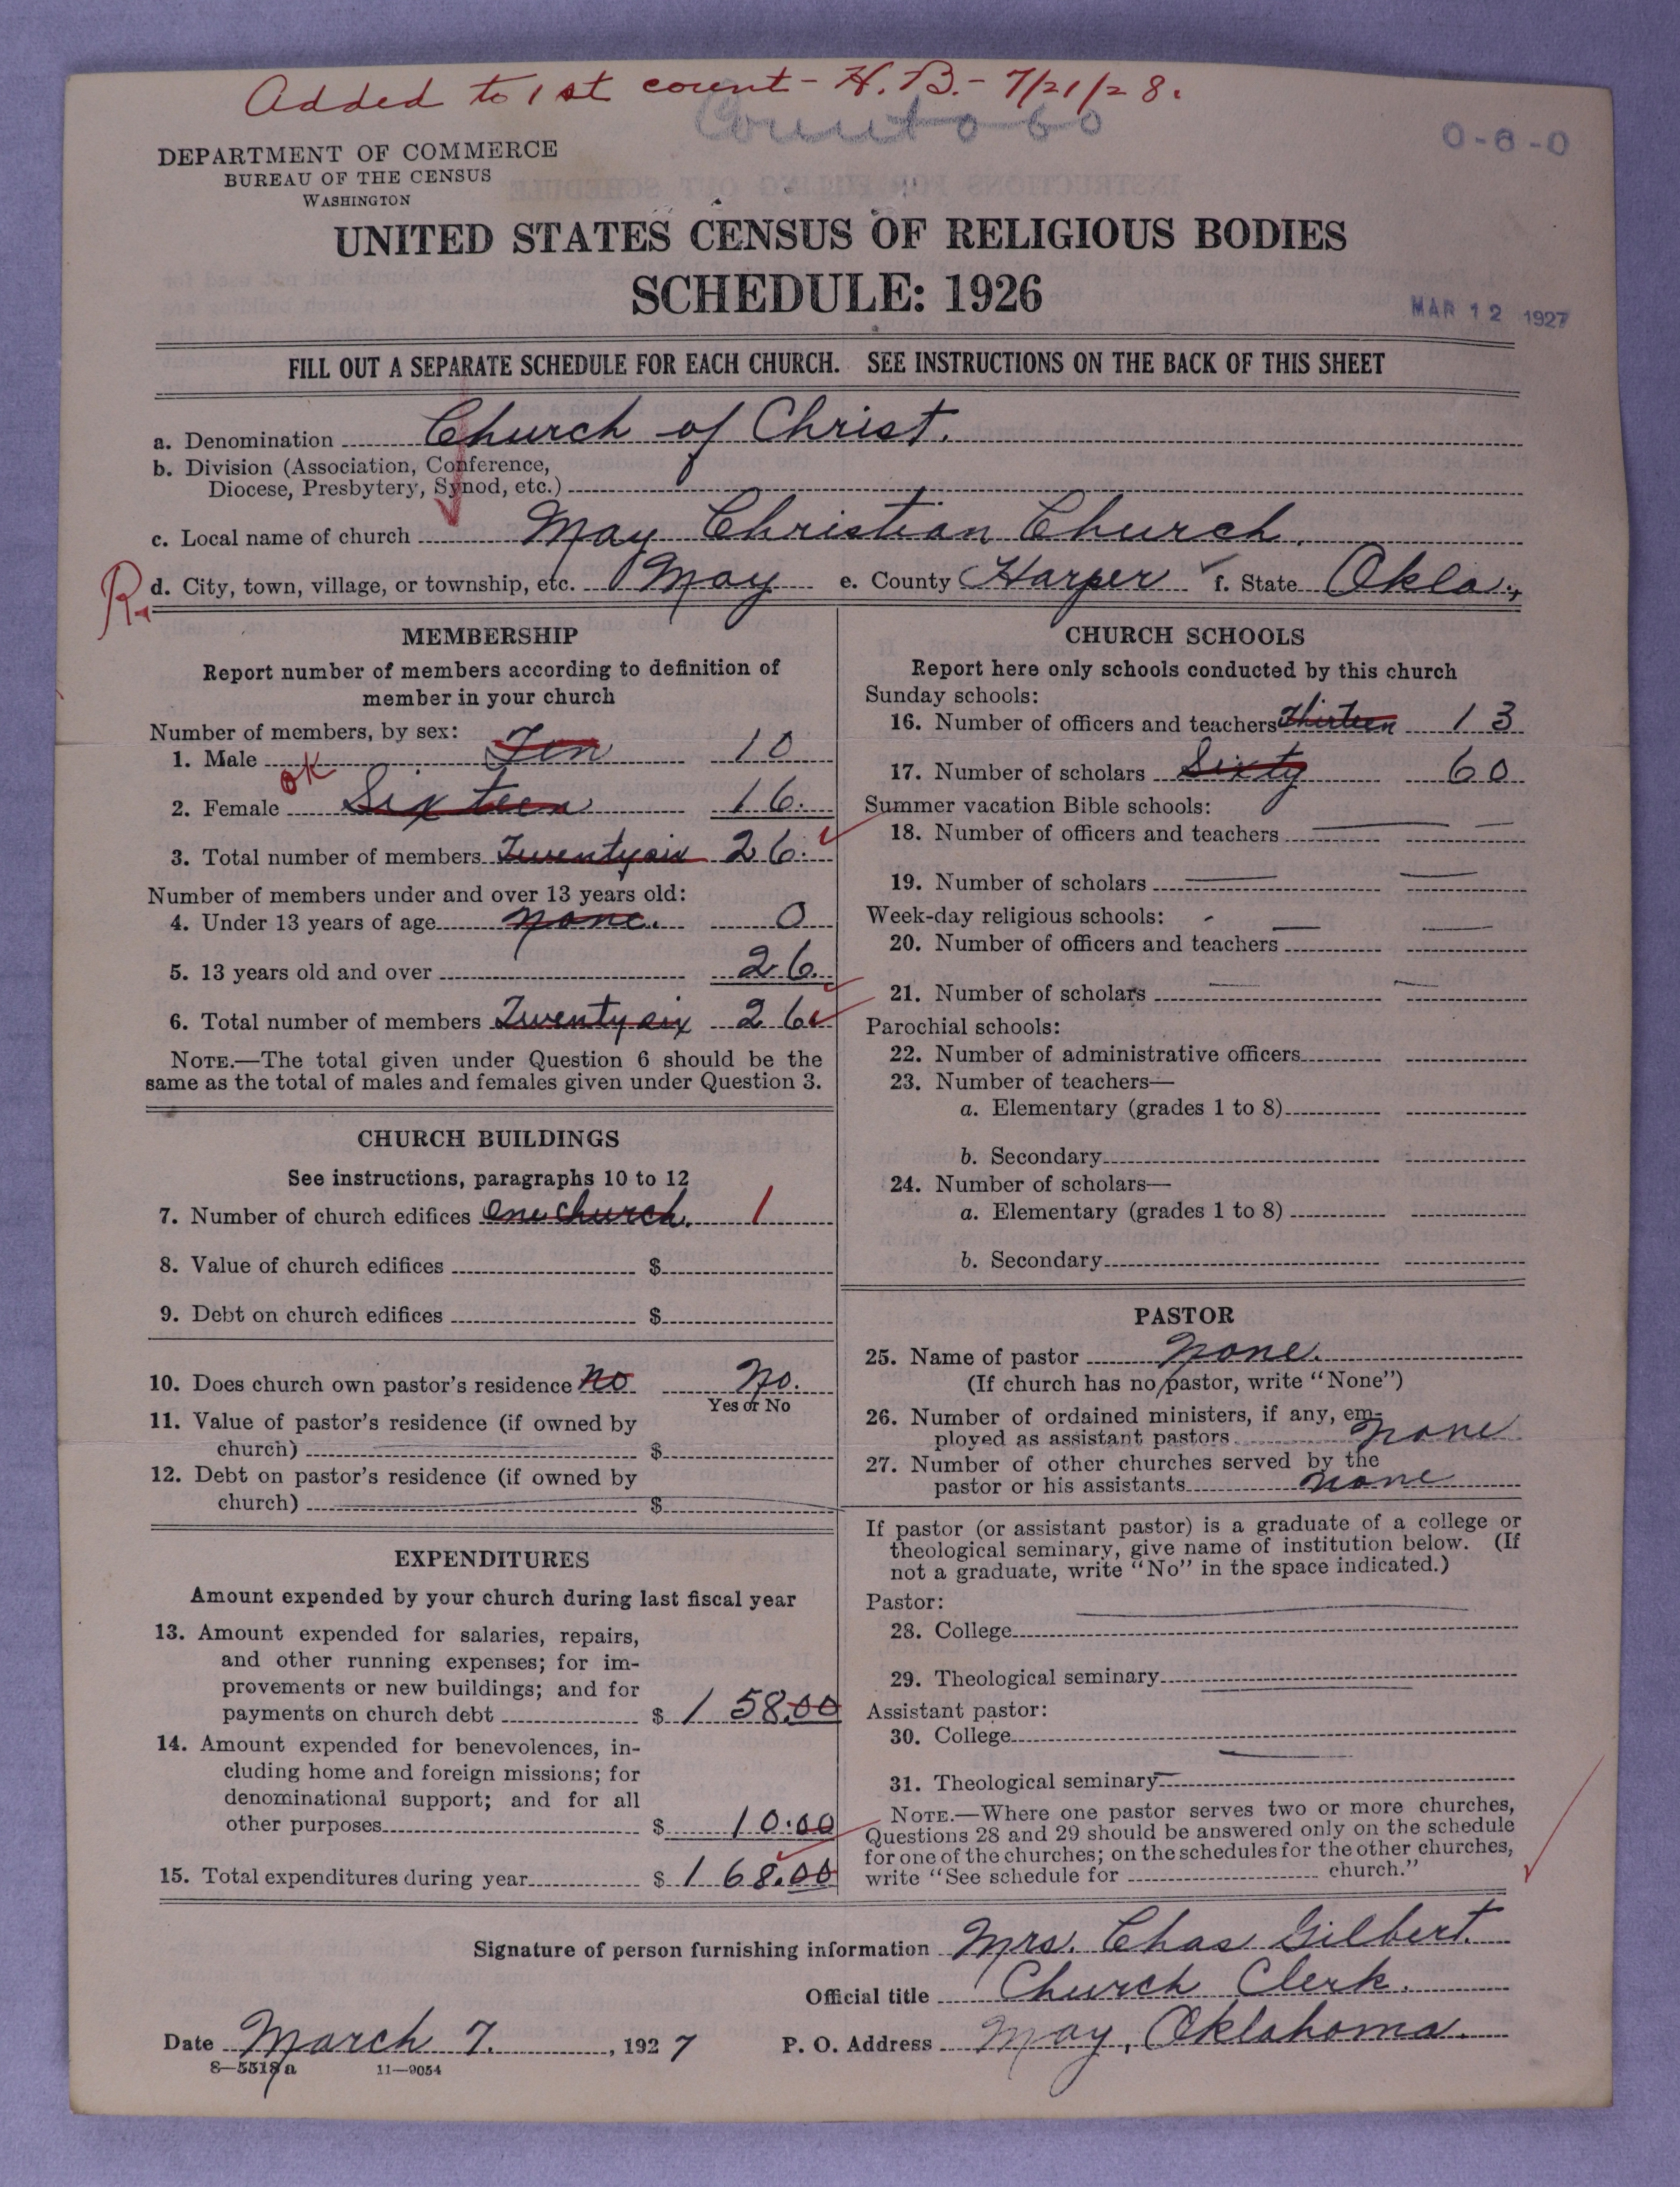 Added to 1st count - H. B. - 7/21/28.
0-6-0
DEPARTMENT OF COMMERCE
BUREAU OF THE CENSUS
WASHINGTON
UNITED STATES CENSUS OF RELIGIOUS BODIES
SCHEDULE: 1926
MAR 12 1927
FILL OUT A SEPARATE SCHEDULE FOR EACH CHURCH. SEE INSTRUCTIONS ON THE BACK OF THIS SHEET
a. Denomination Church of Christ.
b. Division (Association, Conference,
Diocese, Presbytery, Synod, etc.)
c. Local name of church May Christian Church.
R. d. City, town, village, or township, etc. May e. County Harper f. State Okla.
MEMBERSHIP
Report number of members according to definition of
member in your church
Number of members, by sex:
1. Male Ten 10
OK
2. Female Sixteen 16.
3. Total number of members Twentysix 26.
Number of members under and over 13 years old:
4. Under 13 years of age none. 0
5. 13 years old and over 26.
6. Total number of members Twenty six 26
NOTE.—The total given under Question 6 should be the
same as the total of males and females given under Question 3.
CHURCH BUILDINGS
See instructions, paragraphs 10 to 12
7. Number of church edifices One church. 1
8. Value of church edifices $
9. Debt on church edifices $
10. Does church own pastor's residence No No.
Yes or No
11. Value of pastor's residence (if owned by
church) $
12. Debt on pastor's residence (if owned by
church) $
EXPENDITURES
Amount expended by your church during last fiscal year
13. Amount expended for salaries, repairs,
and other running expenses; for im-
provements or new buildings; and for
payments on church debt $ 158.00
14. Amount expended for benevolences, in-
cluding home and foreign missions; for
denominational support; and for all
other purposes $ 10.00
15. Total expenditures during year $ 168.00
CHURCH SCHOOLS
Report here only schools conducted by this church
Sunday schools:
16. Number of officers and teachers Thirteen 13
17. Number of scholars Sixty 60
Summer vacation Bible schools:
18. Number of officers and teachers
19. Number of scholars
Week-day religious schools:
20. Number of officers and teachers
21. Number of scholars
Parochial schools:
22. Number of administrative officers
23. Number of teachers—
a. Elementary (grades 1 to 8)
b. Secondary
24. Number of scholars—
a. Elementary (grades 1 to 8)
b. Secondary
PASTOR
25. Name of pastor none.
(If church has no pastor, write "None")
26. Number of ordained ministers, if any, em-
ployed as assistant pastors none
27. Number of other churches served by the
pastor or his assistants none
If pastor (or assistant pastor) is a graduate of a college or
theological seminary, give name of institution below. (If
not a graduate, write "No" in the space indicated.)
Pastor:
28. College
29. Theological seminary
Assistant pastor:
30. College
31. Theological seminary
NOTE.—Where one pastor serves two or more churches,
Questions 28 and 29 should be answered only on the schedule
for one of the churches; on the schedules for the other churches,
write "See schedule for church."
Signature of person furnishing information Mrs. Chas Gilbert.
Official title Church Clerk.
Date March 7. , 1927 P. O. Address May, Oklahoma.
8—5518a 11—9054